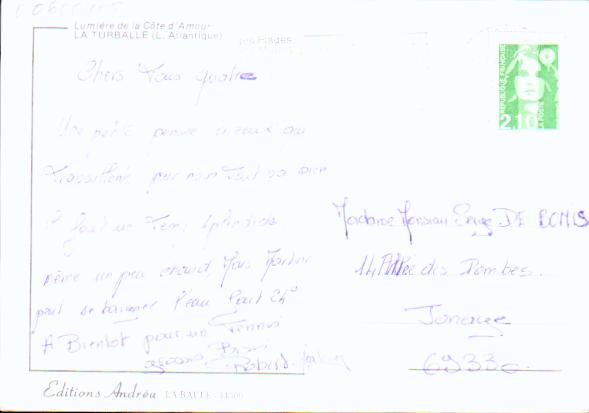 Lumière de la Côte d'Amour
LA TURBALLE (L. Atlantique)
REPUBLIQUE FRANÇAISE
2,10
LA POSTE
Chers Tous quatre
Une petite pensée à ceux qui
Travaillent pour nous Tout va bien
il fait un Temps splendide
même un peu chaud Mais
peut se baigner l'eau fait 24°
A Bientot pour un Tennis
Bisous
Madame Monsieur Serge DE
14 Allée des Dombes
Jonage
69330
Editions Andréa LA BAULE - 44500